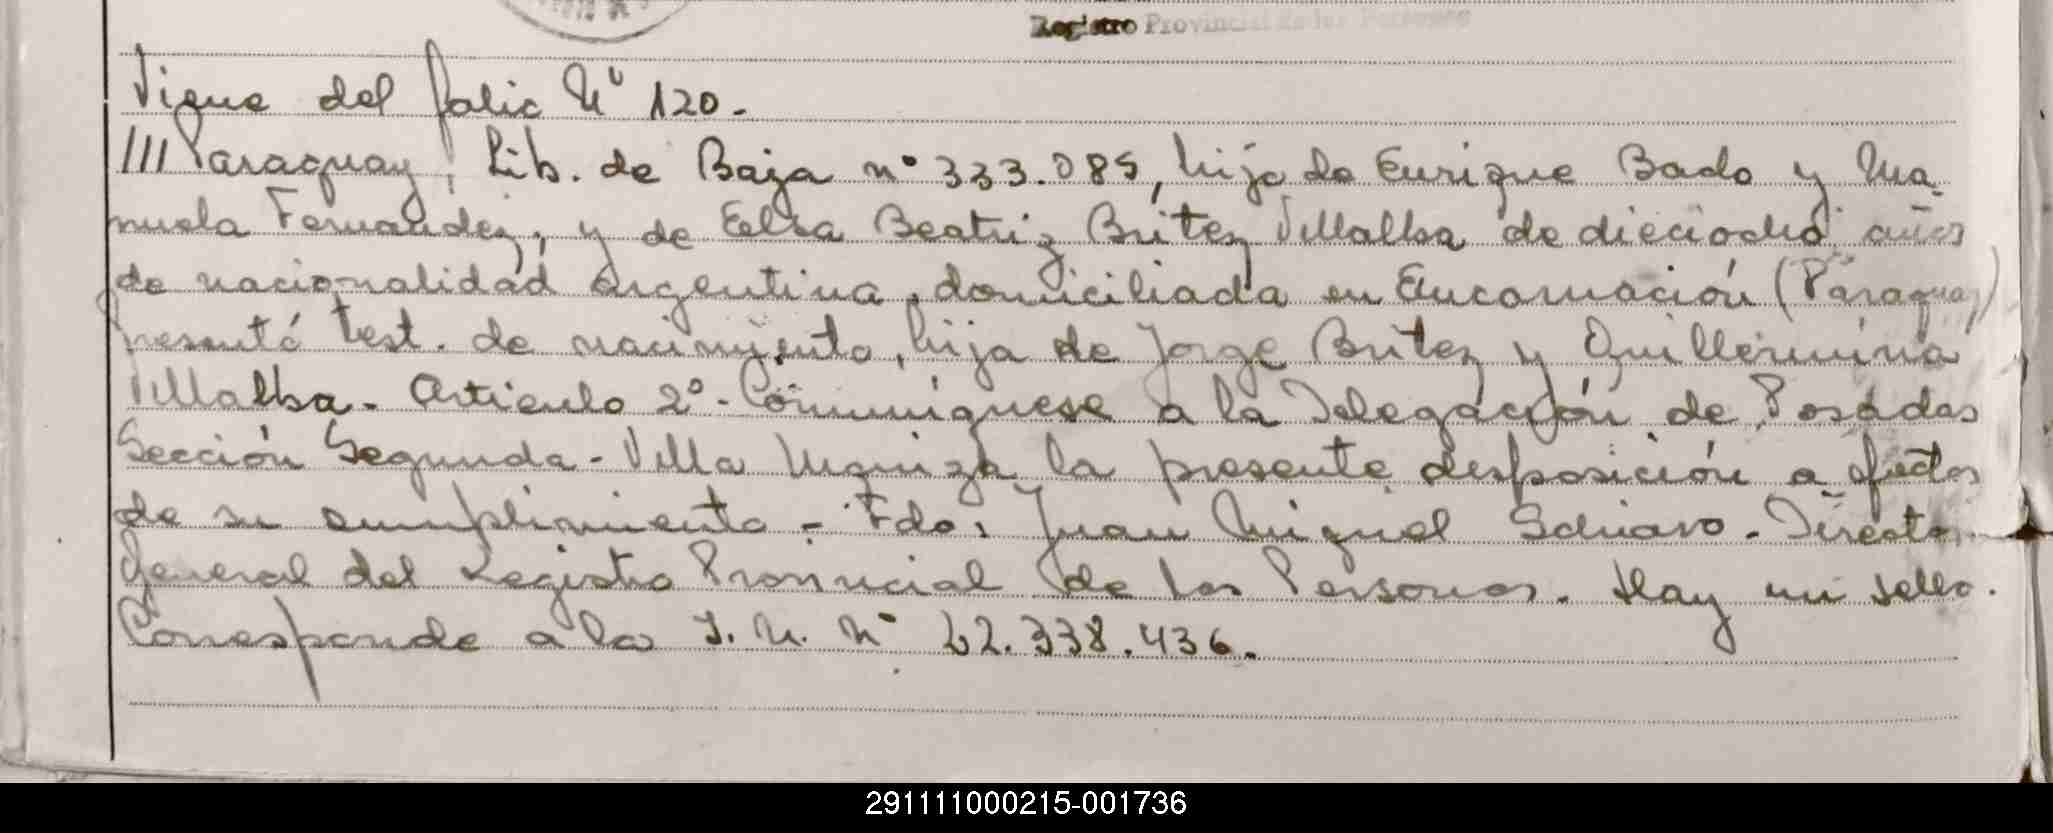 Registro Provincial de las Personas
Sigue del folio Nº 120.-
///Paraguay, Lib. de Baja nº 333.085, hijo de Enrique Bado y Ma-
nuela Fernandez, y de Elsa Beatriz Britez Villalba de dieciocho años
de nacionalidad argentina, domiciliada en Encarnación (Paraguay)
presentó test. de nacimiento, hija de Jorge Britez y Guillermina
Villalba.- Articulo 2º.- Comuníquese a la Delegación de Posadas
Sección Segunda - Villa Urquiza la presente disposición a efectos
de su cumplimiento - Fdo: Juan Miguel Schiavo - Director
General del Registro Provincial de las Personas. Hay un sello.
Corresponde a la I. N. Nº 22.338.436.
291111000215-001736